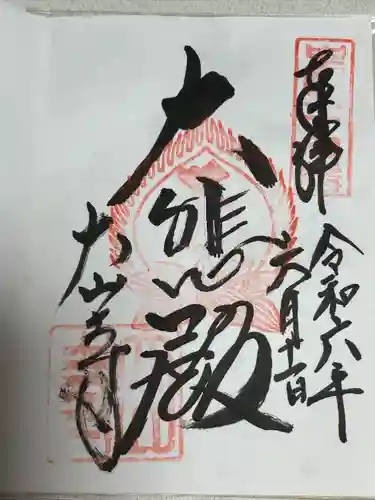 奉拝
令和六年
六月十一日
大悲殿
大山寺